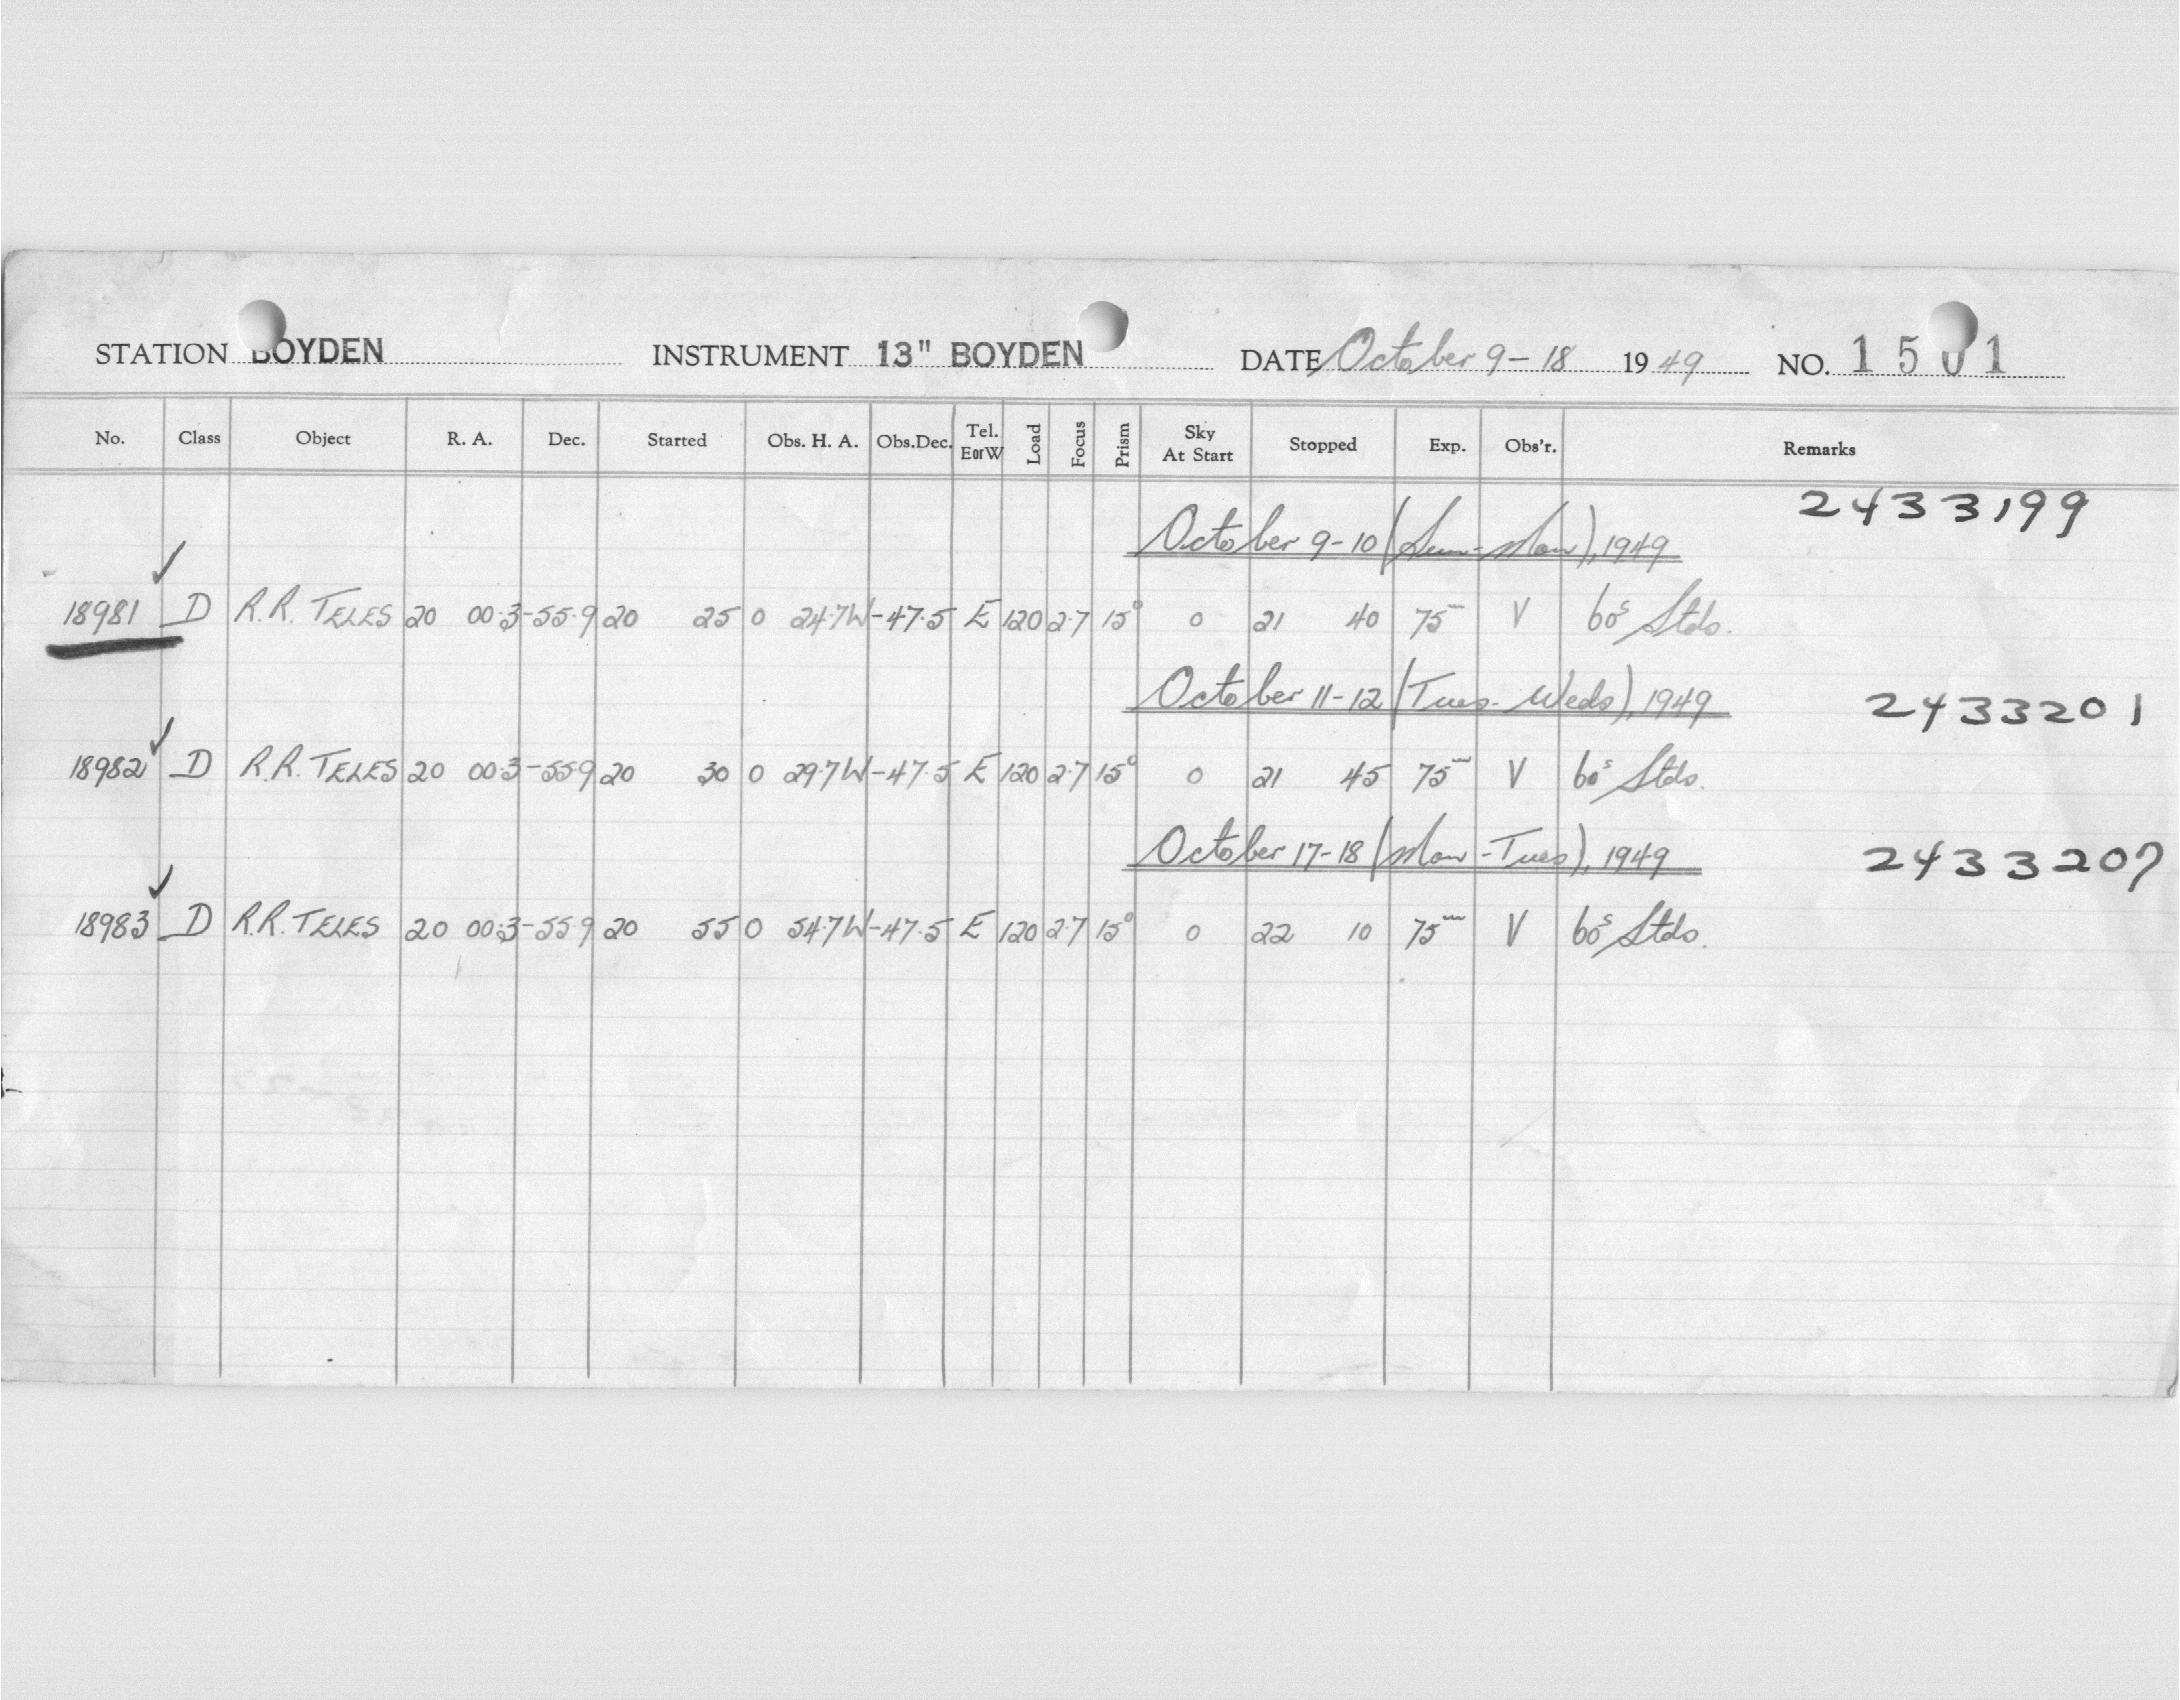 STATION BOYDEN INSTRUMENT 13" BOYDEN DATE October 9-18 1949 NO. 1501
No. Class Object R. A. Dec. Started Obs. H. A. Obs.Dec. Tel. EorW Load Focus Prism Sky At Start Stopped Exp. Obs'r. Remarks
2433199
October 9-10 (Sun-Mon), 1949
18981 D R.R. TELES 20 00.3 -55.9 20 25 0 24.7W -47.5 E 120 2.7 15° 0 21 40 75m V 60s Stds.
October 11-12 (Tues-Weds), 1949 2433201
18982 D R.R. TELES 20 00.3 -55.9 20 30 0 29.7W -47.5 E 120 2.7 15° 0 21 45 75m V 60s Stds.
October 17-18 (Mon-Tues), 1949 2433207
18983 D R.R. TELES 20 00.3 -55.9 20 55 0 54.7W -47.5 E 120 2.7 15° 0 22 10 75m V 60s Stds.